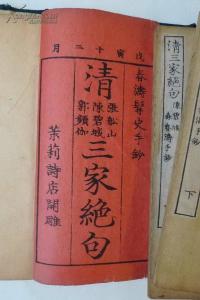 戊寅十二月
春濤髯史手鈔
清
張船山
陳碧城
郭頻伽
三家絶句
茉莉詩店開雕
清三家絶句
陳碧城
森春濤手鈔
下